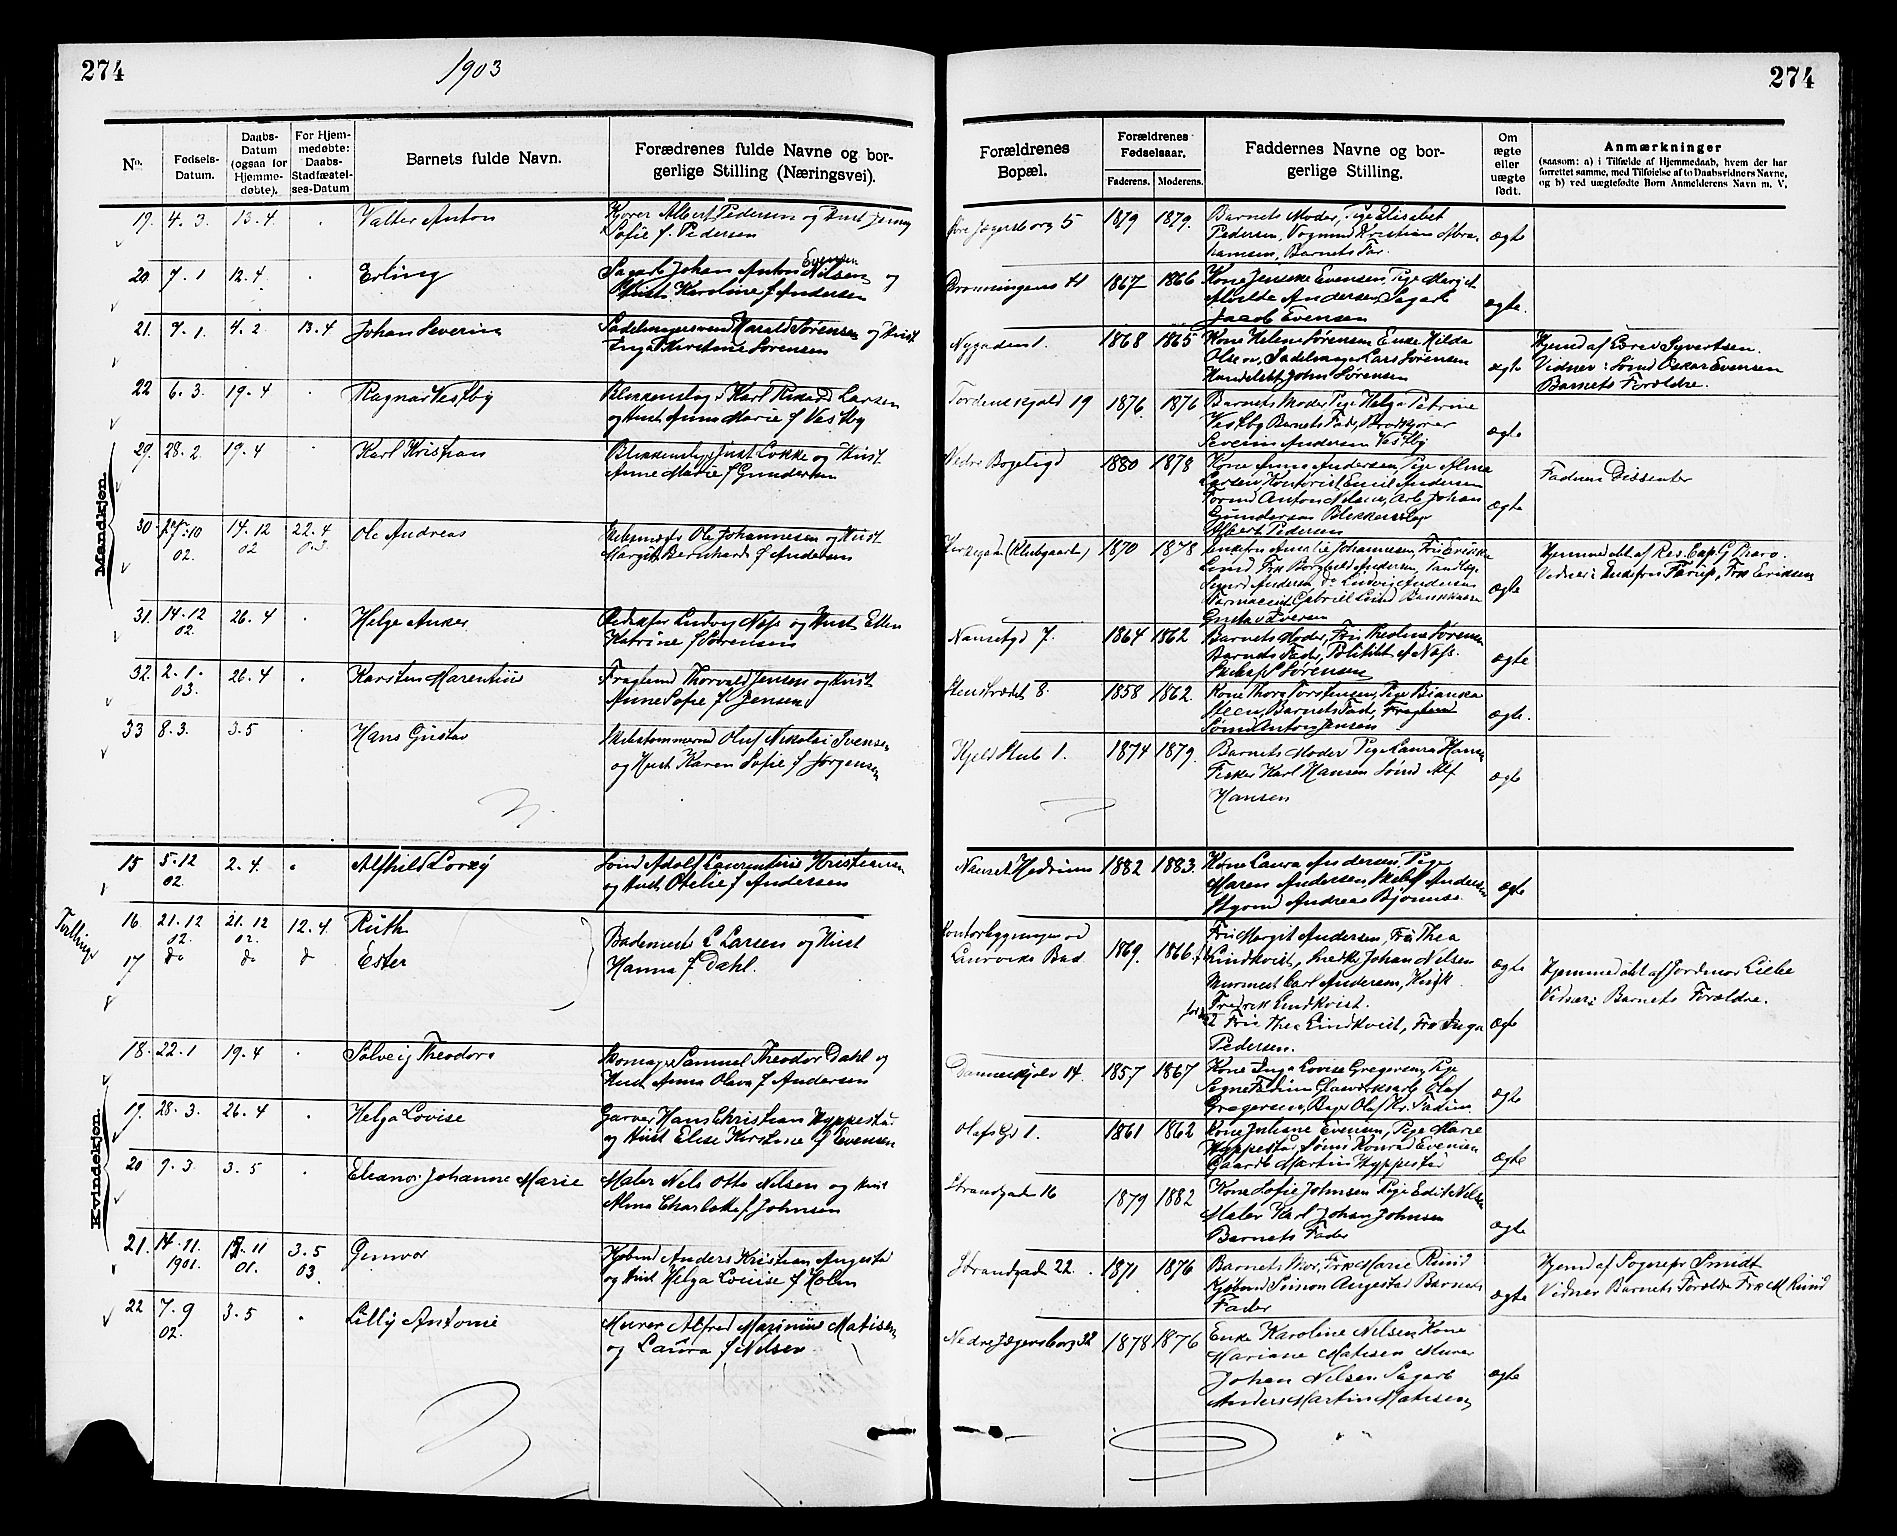 274
1903
274
No.
Fødsels-Datum.
Daabs-Datum (ogsaa for Hjemme-døbte).
For Hjem-medøbte: Daabs-Stadfæstel-ses-Datum
Barnets fulde Navn.
Forædrenes fulde Navne og bor-gerlige Stilling (Næringsvei).
Forældrenes Bopæl.
Forældrenes Fødselsaar.
Faderens.
Moderens.
Faddernes Navne og bor-gerlige Stilling.
Om ægte eller uægte født.
Anmærkninger
(saasom: a) i Tilfælde af Hjemmedaab, hvem der har
forrettet samme, med Tilføielse af to Daabsvidners Navne,
og b) ved uægtefødte Børn Anmelderens Navn m. V.
Mandkjøn.
19. 4.3. 13.4. Valter Anton
Kjører Albert Pedersen og Hust Jenny
Sofie f. Pedersen
5 1879 1879.
Barnets Moder, Pige Elisabet
Pedersen, Kristian Abra-
hamsen, Barnets Far.
ægte
20. 7.1 12.4. Erling
Sagarb Johan Anton Nilsen Evensen og
Hust Karoline f Andersen
Dronningens 1867 1866
Kone Evensen, Pige Margit
Andersen, Sagarb
Jacob Evensen
ægte.
21. 7.1. 4.2 13.4 Johan Severin
Sadelmagersvend Harald Sørensen og Hust
Inga Kirstine Sørensen
Nygaden 1. 1868 1865
Kone Helene Sørensen Enke Hilda
Olsen, Sadelmager Lars Sørensen
John Sørensen
ægte
Hjemd af Syvertsen.
Vidner: Sømd Oskar Evensen
Barnets Forældre.
22 6.3. 19.4 Ragnar Vestby
Blikkenslag Karl Rikard Larsen
og Hust Anna Marie f Vestby
Tordenskjold 19 1876. 1876
Barnets Moder Pige Helga Petrine
Vestby Barnets Fad,
Severin Andersen Vestby
ægte
29. 28.2. 19.4 Karl Kristian
Blikkenslg Løkke og Hust
Anne Marie f Gundersen
Nedre Bøgeligd 1880 1878
Kone Anna Andersen, Pige Alma
Larsen, Kontorist Emil Andersen
Formd Anton Nilsen, Arb Johan
Gundersen Blikkenslag
Albert Pedersen
ægte
Faderen Dissenter
30. 27.10 02. 14.12 02 22.4 03 Ole Andreas
Ole Johannesen og Hust
Margit Bernharda f Andersen
1870 1878
Enkefru Amalie Johannesen, Fru
Lund Frk Borghild Andersen,
Sigurd Andersen do Ludvig Andersen
Farmaceut Gabriel Lund
Gustav Iversen
ægte
Hjemmedøbt af Res. Cap
Vidner: Enkefru Frk Eriksen
31. 14.12 02. 26.4 Helge Anker
Redaktør Ludvig Næss og Hust Ellen
Katrine f Sørensen
Nansetgd 7. 1864 1862
Barnets Moder, Fru Sørensen
Barnets Fader, Næss.
Sørensen
ægte
32. 2.1. 03. 26.4 Karsten Marentius
Thorvald Jensen og Hust
Anne Sofie f Jensen
Stenstrædet 8. 1858 1862
Kone Thora Torstensen, Pige Bianka
Steen, Barnets Fader,
Sømd Anton Jensen
ægte.
33 8.3. 3.5 Hans Gustav
Skibstømmermd Oluf Nikolai Svensen
og Hust Karen Sofie f Jørgensen
Kjeldshub 1. 1874 1879.
Barnets Moder Pige Laura Hansen
Fisker Karl Hansen Sømd Alf
Hansen
ægte
Kvindekjøn.
15 5.12 02. 2.4. Alfhild Lovny
Sømd Adolf Laurentius Kristiansen
og Hust Otelie f Andersen
Nanset Hedrum 1882 1883.
Kone Laura Andersen, Pige
Maren Andersen, Andersen
Styrmd Andreas Bjønnes
ægte
Tvillinge
16. 21.12 02. 21.12 02. 12.4. Ruth
17 do do d Ester
Bademester L Larsen og Hust
Hanna f Dahl.
Kontorbygningen ved
Laurviks Bad 1869. 1866.
Fru Margit Andersen, Fru Thea
Lindkvist, Snedker Johan Nilsen
Murmest Carl Andersen,
Fredrik Lindkvist.
for 2 Fru Thea Lindkvist, Frk Inga
Pedersen.
ægte
ægte
Hjemmedøbt af Jordmor Liebe
Vidner: Barnets Forældre.
18. 22.1 19.4 Solveig Theodora
Skomager Samuel Theodor Dahl og
Hust Anna Olava f Andersen
Danneskjold 14. 1857 1867
Kone Inga Lovise Gregersen, Pige
Signe Fadum Glasværksarb Olaf
Gregersen, Bager Olaf Kr. Fadum
ægte
19. 28.3. 26.4 Helga Lovise
Garver Hans Christian Hyppestad
og Hust Elise Kirstine f Evensen
Olafsgd 1. 1861 1862
Kone Juliane Evensen, Pige Marie
Hyppestad, Sømd Konrad Evensen
Gaardb Martin Hyppestad
ægte
20 9.3. 3.5 Eleanor Johanne Marie
Maler Nels Otto Nilsen og Hust
Alma Charlotte f Johnsen
Strandgad 16 1879 1882
Kone Sofie Johnsen Pige Edit Nilsen
Maler Karl Johan Johnsen
Barnets Fader
ægte
21. 14.11. 1901. 17.11 01. 3.5 03. Gunvor
Kjøbmd Anders Kristian Angestad
og Hust Helga Louise f Holm
Strandgad 22. 1871 1876
Barnets Mor, Frk Marie Ruud
Kjøbmd Simon Angestad Barnets
Fader
ægte
Hjemd af Sognepr Smidt
Vidner Barnets Forældre Frk M Ruud
22 7.9 02. 3.5 Lilly Antonie
Murer Alfred Marinius Matisen
og Laura f Nilsen.
Nedre Jegersborg 32 1878 1876
Enke Karoline Nilsen, Kone
Mariane Matisen Murer
Johan Nilsen Sagarb
Anders Martin Matisen
ægte